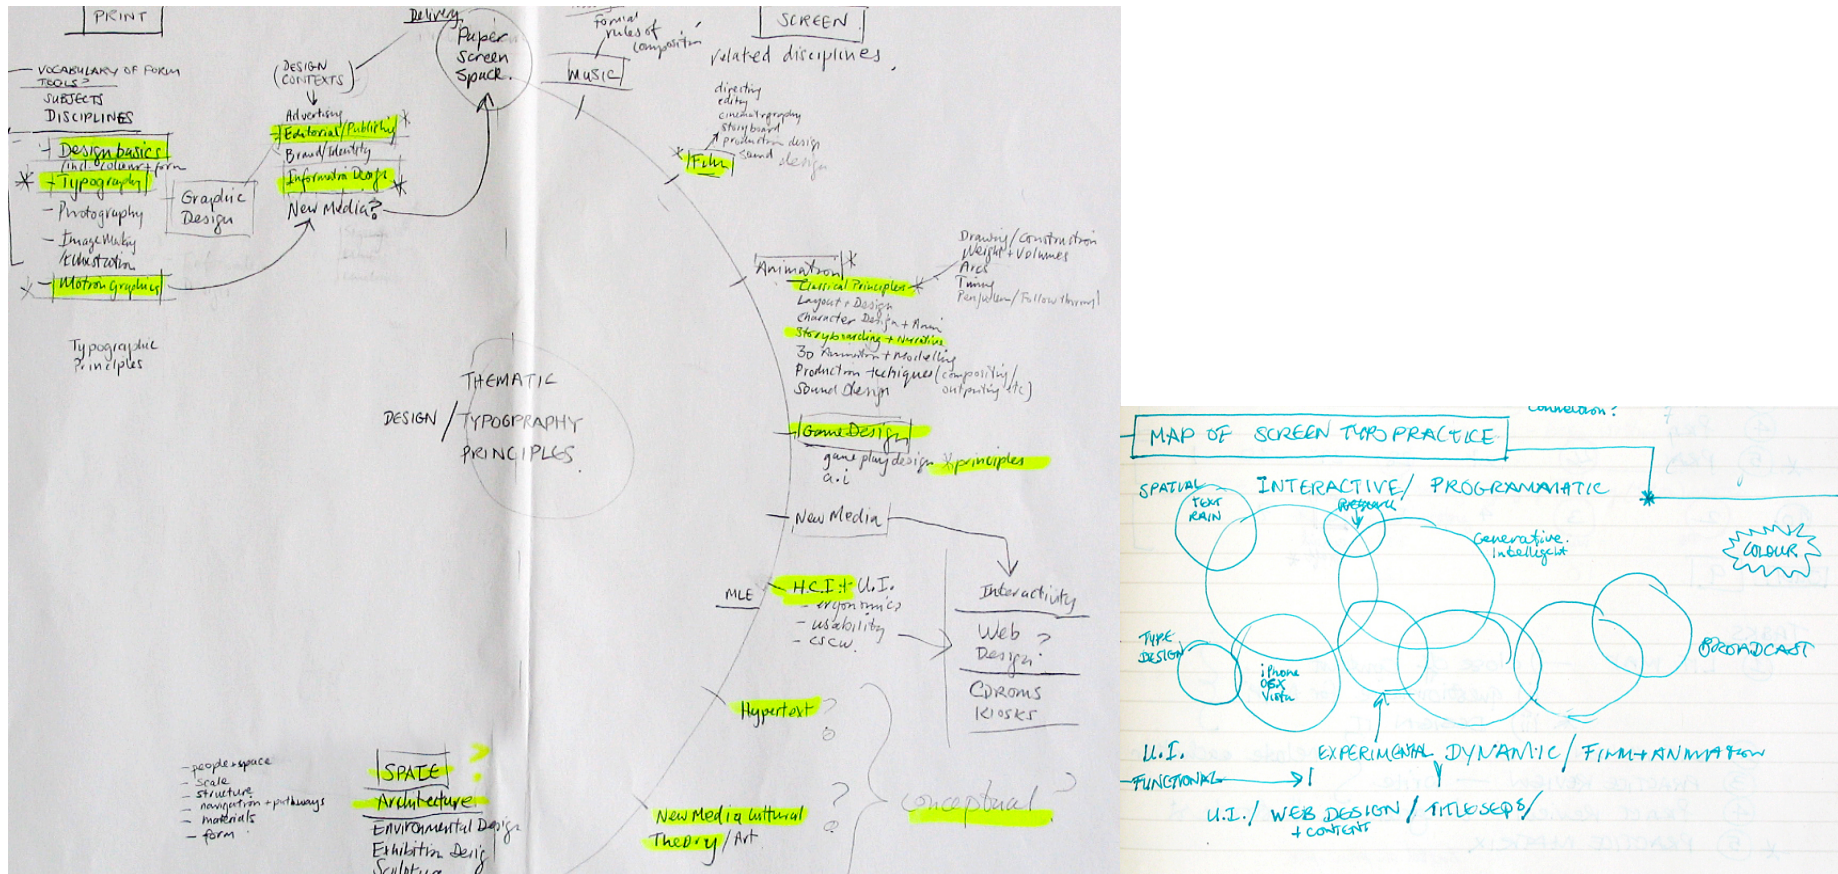 PRINT
VOCABULARY OF FORM
TOOLS?
SUBJECTS
DISCIPLINES
Design basics
/incl. colour + form
* - Typography
- Photography
- Image Making
/Illustration
* - Motion Graphics
Typographic
Principles
Graphic
Design
(DESIGN
CONTEXTS)
Advertising
Editorial/Publishing *
Brand/Identity
Information Design *
New Media?
Delivery
Paper
Screen
Space.
formal
rules of
composition
MUSIC
SCREEN
related disciplines,
directing
editing
cinematography
storyboard
production design
sound design
* Film
THEMATIC
DESIGN / TYPOGRAPHY
PRINCIPLES.
Animation *
Classical Principles *
Layout + Design
Character Design + Anim
Storyboarding + Narrative
3D Animation + Modelling
Production techniques (compositing/
outputing etc)
Sound Design
Drawing/Construction
Weight + Volumes
Arcs
Timing
Pendulum/Follow through
Game Design
game play design * principles
a.i
New Media
MLE
H.C.I. + U.I.
- ergonomics
- usability
- CSCW.
Interactivity
Web ?
Design
CDROMS
KIOSKS
Hypertext ?
New Media Cultural ?
Theory / Art
Conceptual ?
- people + space
- scale
- structure
- navigation + pathways
- materials
- form
SPACE ?
Architecture
Environmental Design
Exhibition Design
Sculpture
connection?
MAP OF SCREEN TYPO PRACTICE
SPATIAL
TEXT
RAIN
INTERACTIVE/ PROGRAMMATIC
Generative.
Intelligent
COLOUR
TYPE
DESIGN
iPhone
OSX
Vista
BROADCAST
U.I.
FUNCTIONAL
EXPERIMENTAL DYNAMIC / FILM + ANIMATION
U.I. / WEB DESIGN / TITLE SEQS /
+ CONTENT